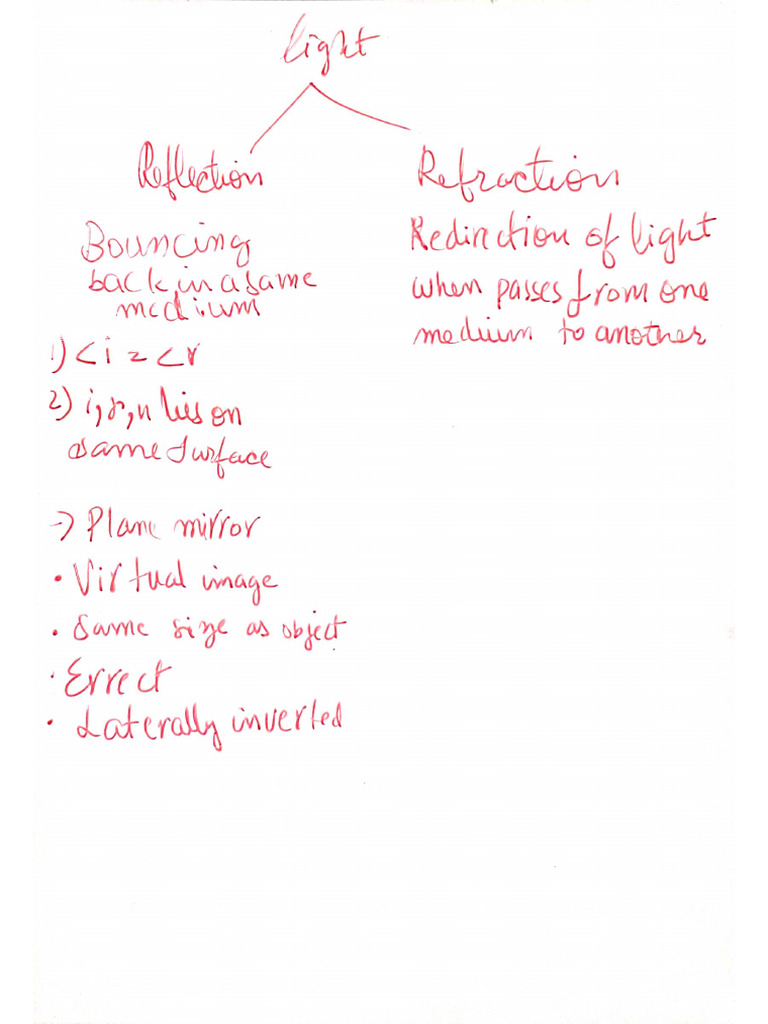 Light
Reflection
Bouncing
back in a same
medium
1) <i = <r
2) i, r, n lies on
same surface
-> Plane mirror
• Virtual image
• Same size as object
• Errect
• Laterally inverted
Refraction
Redirection of light
when passes from one
medium to another